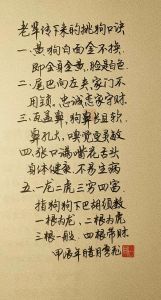 老辈传下来的挑狗口诀
一、黄狗白面金不换
即全身金黄，脸是白色
二、尾巴向左夹家门不
用锁，忠诚志家守财
三、瓦盖鼻，狗鼻长且软
鼻孔大，嗅觉更灵敏
四、张口满嘴花舌头
身体健康，不易生病
五、一龙二虎三穷四富
指狗狗下巴胡须数
一根为龙，二根为虎
三根一般，四根带财
甲辰年腊月